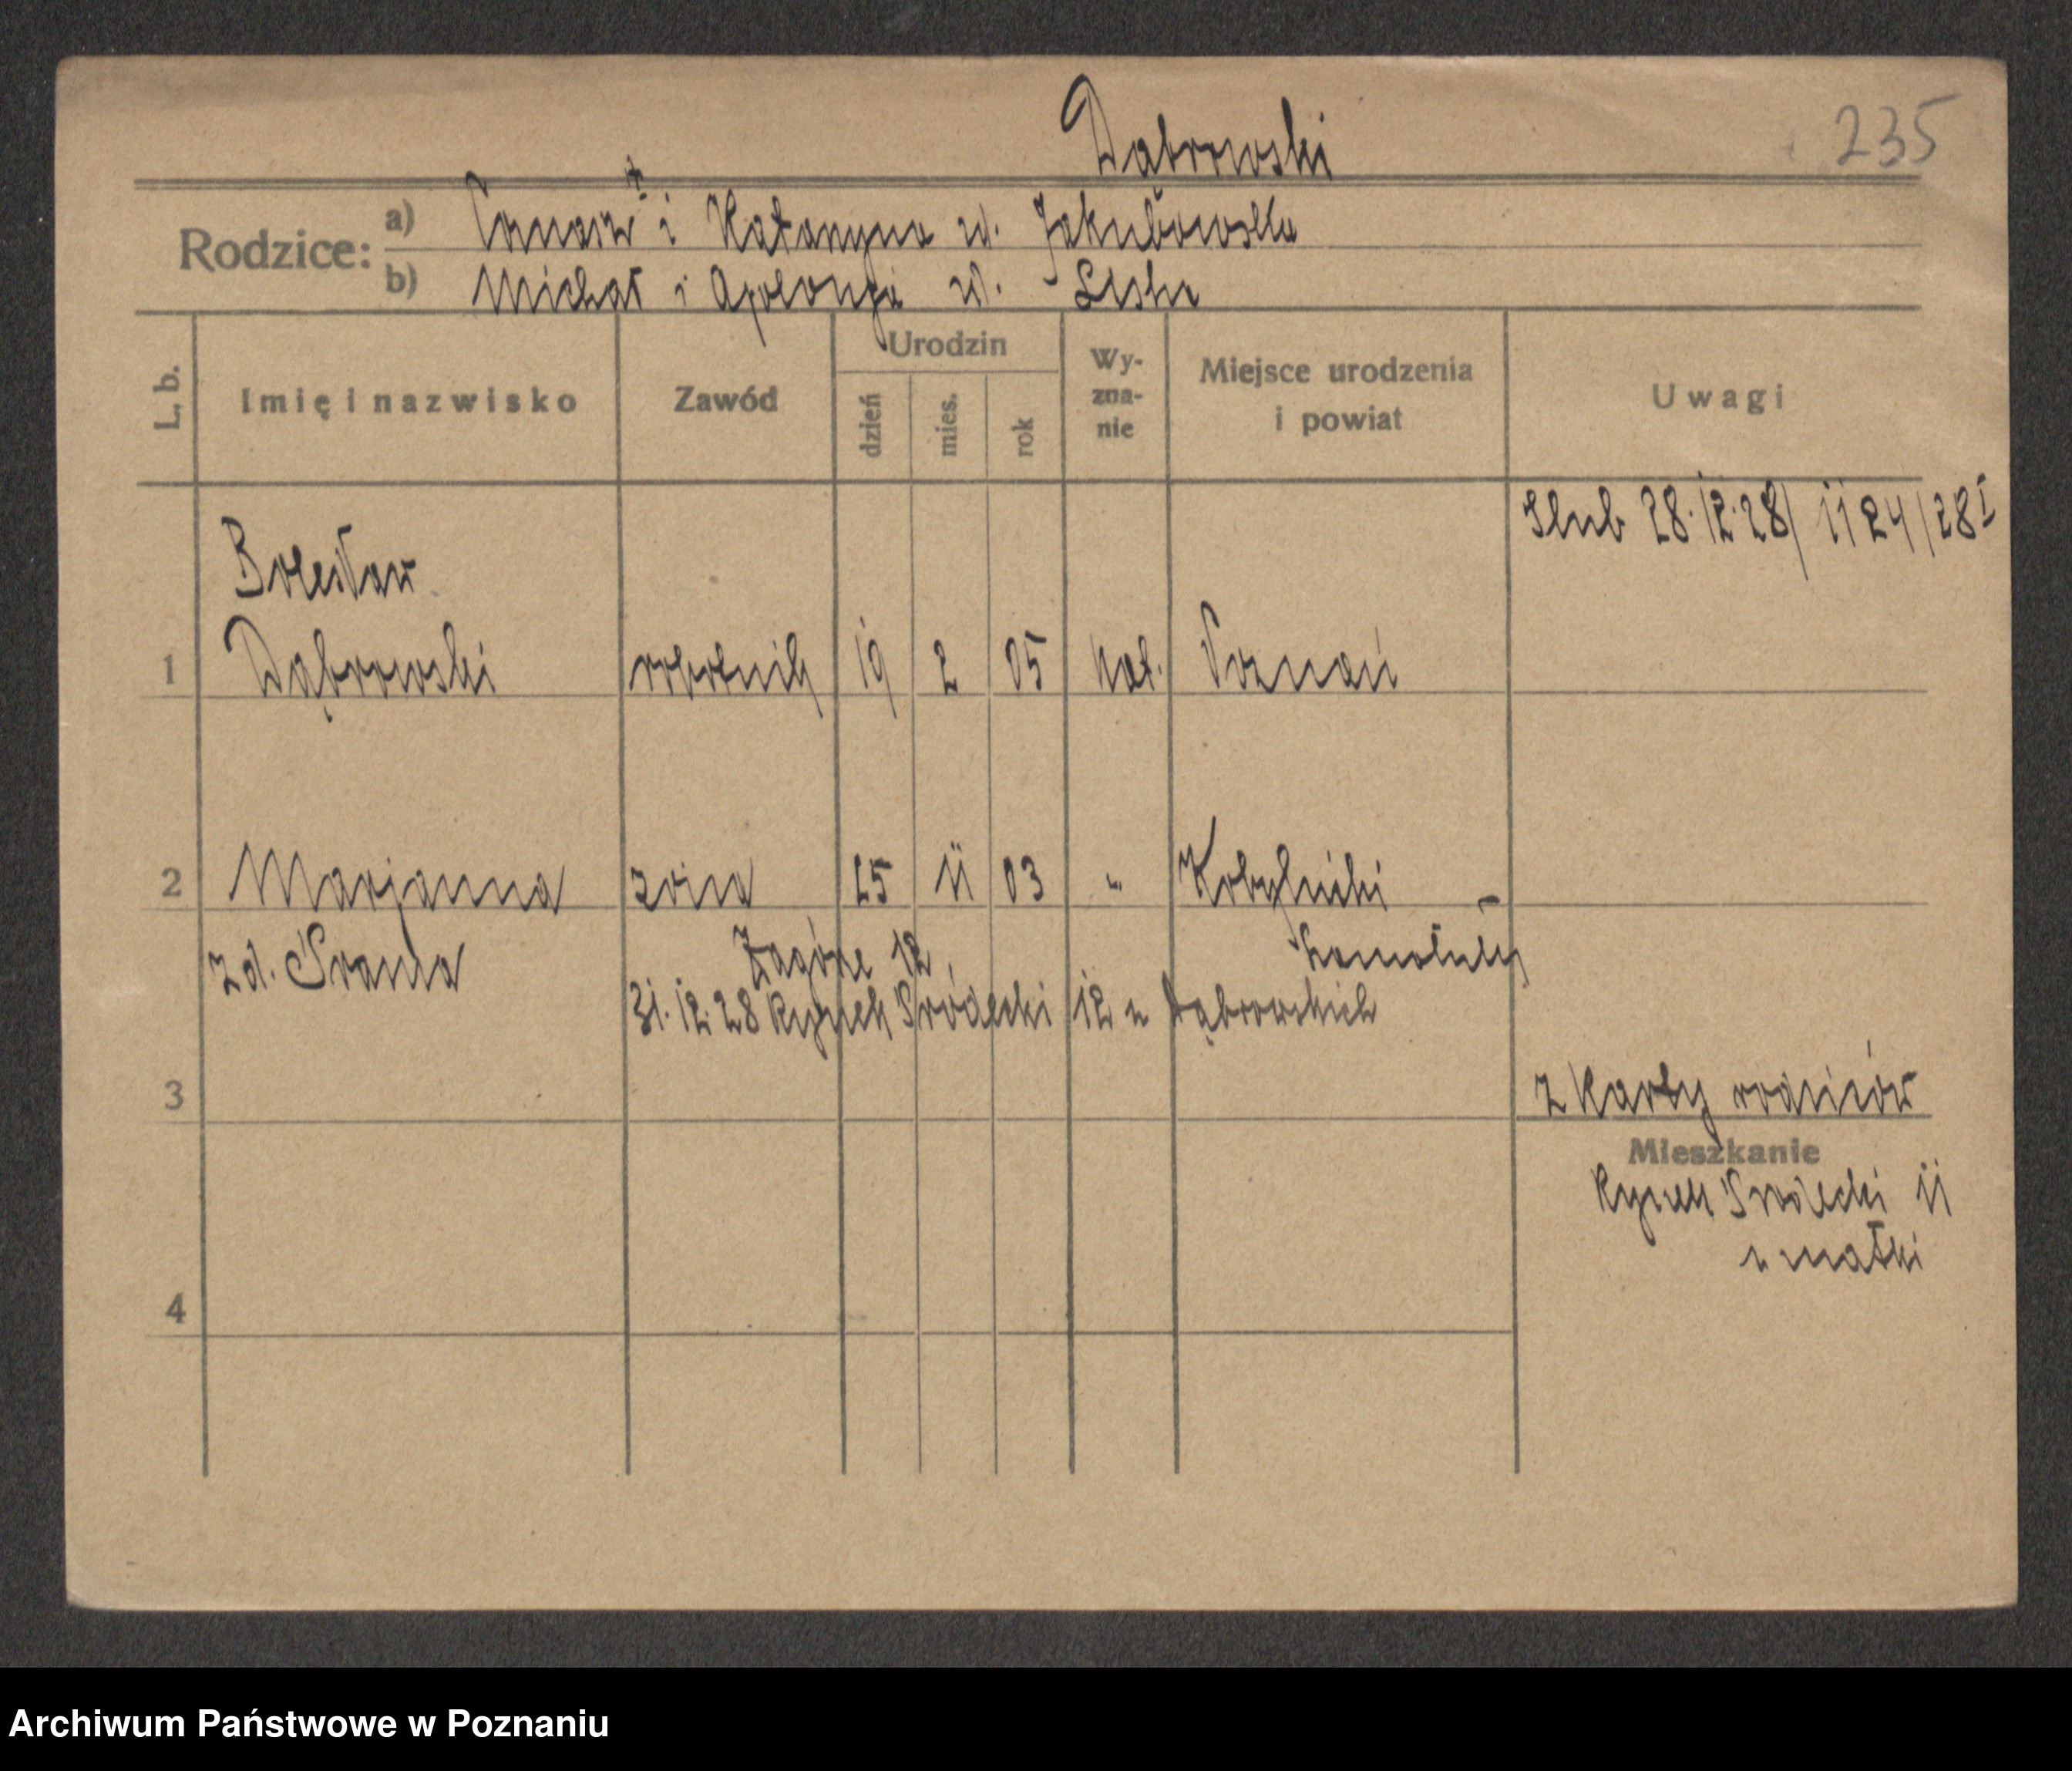 Dąbrowski
235
Rodzice:
a) i Katarzyna zd. Jakubowska
b) Michał i Apolonja zd.
L. b.
Imię i nazwisko
Zawód
Urodzin
dzień
mies.
rok
Wy-
zna-
nie
Miejsce urodzenia
i powiat
Uwagi
Ślub 28.12.28/ 1124/28 I
Bolesław
1 Dąbrowski robotnik 19 2 05 kat. Poznań
2 Marjanna żona 25 11 03 " Kobylniki -
zd. Zagórze 12 Szamotuły
31.12.28 Rynek Śródecki 12 u Dąbrowskich
3 z karty rodziców
Mieszkanie
Rynek Śródecki 11
u matki
4
Archiwum Państwowe w Poznaniu